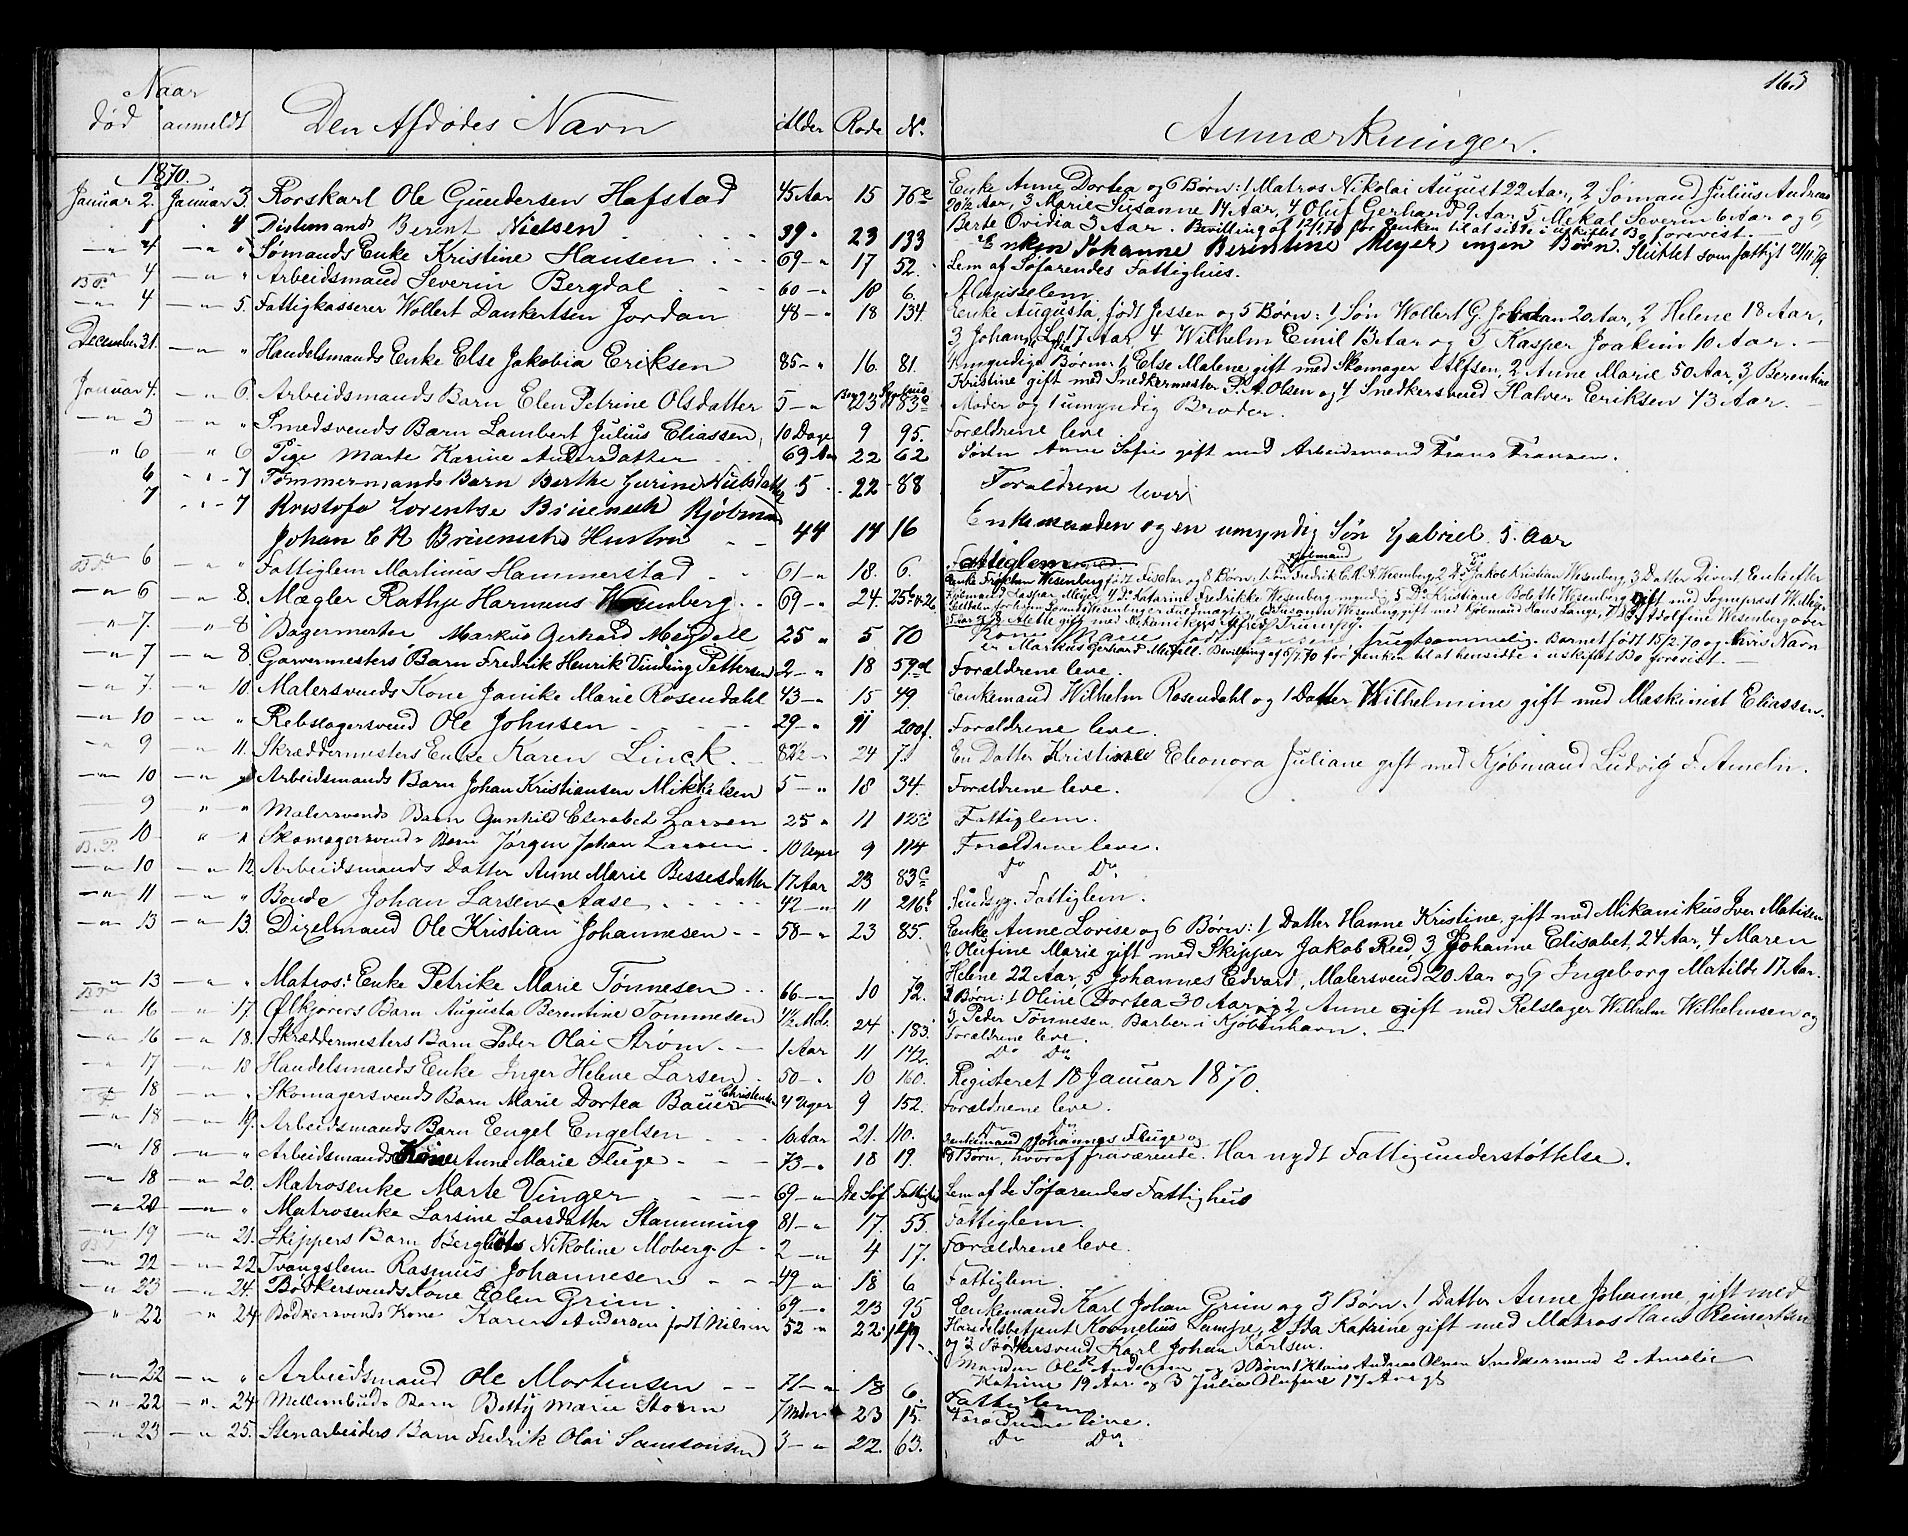 163
Naar
død anmeldt Den Afdødes Navn Alder Rode No. Anmærkninger.
1870.
Januar 2. Januar 3. Rorskarl Ole Gundersen Hafstad 45 Aar 15 76c Enke Anne Dortea og 6 Børn: 1 Matros Nikolai August 22 Aar, 2 Sømand Julius Andreas
20½ Aar, 3 Marie Susanne 14 Aar, 4 Oluf Gerhard 9 Aar, 5 Mekal Severin 6 Aar og 6
Berte Ovidia 3 Aar. Bevilling af 12/1 70 for Enken til at sidde i uskiftet Bo forevist.
" 1 " 4 Berent Nielsen 39 " 23 133 Enken Johanne Berentine Meyer, ingen Børn. Sluttet som fattigt 21/11 79.
" 4 " " Sømands Enke Kristine Hansen 69 " 17 52. Lem af Søfarendes Fattighus.
" 4 " " Arbeidsmand Severin Bergdal 60 " 18 6.
" 4 " 5. Fattigkasserer Wollert Dankertsen Jordan 48 " 18 134. Enke Augusta, født Jessen og 5 Børn: 1 Søn Wollert G. Jordan 20 Aar, 2 Helene 18 Aar,
3 Johan L. 17 Aar, 4 Wilhelm Emil 13 Aar og 5 Kasper Joakim 10 Aar.
December 31. " " Handelsmands Enke Else Jakobia Eriksen 85 " 16. 81. 4 myndige Børn: 1 Else Malene gift med Skomager Alfsen, 2 Anne Marie 50 Aar, 3 Berentine
Kristine gift med Snedkermester P. A. Olsen og 4 Snedkersvend Halver Eriksen 43 Aar.
Januar 4. " 6. Arbeidsmands Barn Elen Petrine Olsdatter 5 " 23 83c Moder og 1 umyndig Broder.
" 3 " " Smedsvends Barn Lambert Julius Eliassen 10 Dage 9 95. Forældrene leve
" 6 " 6 Pige Marte Karine Andersdatter 69 Aar 22 62 Søster Anne Sofie gift med Arbeidsmand Frans Fransen.
6 " 7 Tømmermands Barn Berthe Gurine Nielsdatter 5 " 22 88 Forældrene lever
7 " 7 Kristofa Lorentse Brisensch Kjøbmand
Johan C R Hustru 44 14 16 Enkemanden og en umyndig Søn Gabriel 5 Aar
" 6 " " Fattiglem Martinus Hammerstad 61 " 18. 6. Fattiglem
" 6 " 8. Mægler Rathje Harmens Wesenberg 69 " 24. 25b & 26
" 7. " 8 Bagermester Markus Gerhard Meydell 25 " 5 70
" 7 " 8. Garvermesters Barn Fredrik Henrik Vinding Pettersen 2 " 18 59d Forældrene leve
" 7. " 10. Malersvends Kone Janike Marie Rosendahl 43 " 15 49 Enkemand Wilhelm Rosendahl og 1 Datter Wilhelmine gift med Maskinist Eliassen.
" 10 " " Rebslagersvend Ole Johnsen 29 " 11 200f. Forældrene leve.
" 9 " 11. Skræddermesters Enke Karen Linck. 82½ " 24 7. En Datter Kristiane Eleonora Juliane gift med Kjøbmand Ludvig F. Ameln.
" 10 " " Arbeidsmands Barn Johan Kristiansen Mikkelsen 5 " 18 34. Forældrene leve.
" 9 " " Malersvends Barn Gunhild Elisabet Larsen 25 " 11 125 Fattiglem.
" 10 " " Skomagersvends Barn Jørgen Johan Larsen 10 Uger 9 114 Forældrene leve.
" 10 " 12. Arbeidsmands Datter Anne Marie Bessesdatter 17 Aar 23 83c Do Do
" 11 " " Bonde Johan Larsen Aase 42 " 11 216 Sindsyg. Fattiglem.
" 13 " 13. Dixelmand Ole Kristian Johannesen 58 " 23 85. Enke Anne Lovise og 6 Børn: 1 Datter Hanne Kristine, gift med Mikanikus Iver Matisen
2 Olufine Marie gift med Skipper Jakob Reed, 3 Johanne Elisabet, 24 Aar, 4 Maren
Helene 22 Aar, 5 Johannes Edvard, Malersvend 20 Aar og 6 Ingeborg Matilde 17 Aar.
" 13 " " Matros. Enke Petrike Marie Tønnesen 66 " 10 72. 3 Børn: 1 Oline Dortea 30 Aar, 2 Anne gift med Rebslager Wilhelm Wilhelmsen og
3 Peder Tønnesen, Barber i Kjøbenhavn.
" 16 " 17. Ølkjørers Barn Augusta Berentine Tommesen 4½ Mdr. 24. 183 Forældrene leve.
" 16 " 18. Skræddermesters Barn Peder Olai Strøm 1 Aar 11 142. Do Do
" 17 " 18 Handelsmands Enke Inger Helene Larsen 50 " 10 160. Registeret 18 Januar 1870.
" 18 " " Skomagersvends Barn Marie Dortea Bauer Christensen 4 Uger 9 152. Forældrene leve.
" 18 " 19. Arbeidsmands Barn Engel Engelsen 10 Aar 21. 110. Do Do
" 18 " " Arbeidsmands Kone Anne Marie Fluge 73 " 18 19. Enkemand Johannes Fluge og
8 Børn, hvoraf fraværende. Har nydt Fattigunderstøttelse.
" 18 " 20. Matrosenke Marte Vinger 69 " De Søf. Fattighus Lem af de Søfarendes Fattighus
" 20 " " Matrosenke Larsine Larsdatter Stamming 81 " 17. 55. Fattiglem.
" 19 " 21. Skippers Barn Bergliot Nikoline Moberg 2 " 4 17. Forældrene leve.
" 22 " 22 Tvangslem Rasmus Johannesen 49 " 18 6 Fattiglem.
" 23 " 24. Bødkersvends Kone Elen Grim 69 " 23 95 Enkemand Karl Johan Grim og 3 Børn: 1 Datter Anne Johanne, gift med
Handelsbetjent Kornelius Lampe, 2 Ida Katrine gift med Matros Hans Reinertsen
og 3 Bødkersvend Karl Johan Karlsen.
" 22 " 24. Bødkersvends Kone Karen Andersen født Nilsen 52 " 22 149. Manden Ole Andersen og 3 Børn 1 Klaus Andreas Olsen Snedkersvend 2 Amalie
Katrine 19 Aar og 3 Julie Olufine 17 Aar
" 22 " " Arbeidsmand Ole Mortensen 71 " 18 6. Fattiglem
" 22 " 24. Mellembuds Barn Betty Marie Storm 7 Mdr 23 15. Forældrene leve.
" 23 " 25. Stenarbeiders Barn Fredrik Olai Samsonsen 3 " 22. 63. Do Do